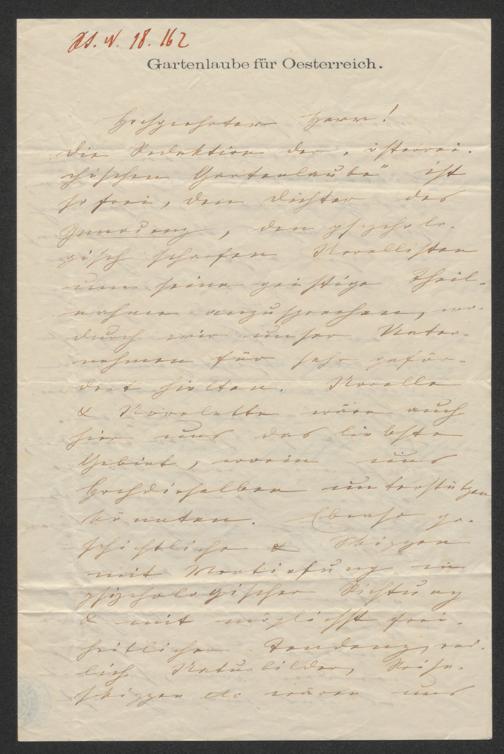 Gartenlaube für Oesterreich.
Hochgeehrter Herr!
Die Redaktion der „österrei-
chischen Gartenlaube" ist
so frei, den Dichter des
, den psycholo-
gisch scharfen Novellisten
um seine geistige Theil-
nahme anzusprechen, wo-
durch wir unser Unter-
nehmen für sehr geför-
dert hielten. Novelle
& Novelette wäre auch
hier uns das liebste
Gebiet, worin uns
Hochdieselben unterstützen
könnten. Ebenso ge-
schichtliche & Skizzen
mit Vertiefung in
psychologischer Richtung
& mit möglichst frei-
heitlicher Tendenz,
Naturbilder, Reise-
skizzen etc wären uns